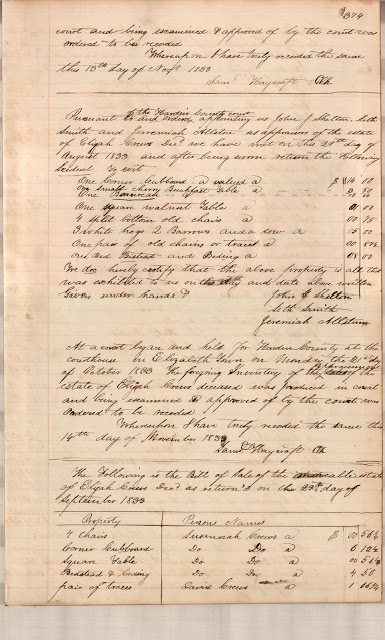 374
court and being examined & approved of by the court was
ordered to be recorded
Whereupon I have truly recorded the same
this 13th day of Novr 1833
Saml Haycraft Clk
Pursuant to an order of the Hardin County court appointing us John J Shelton Seth
Smith and Jeremiah Allstun as appraisers of the estate
of Elijah Crews Decd we have met on this 29th day of
August 1833 and after being sworn return the following
to wit
One Corner Cubboard a valued a $ 14 00
One Small cherry Breakfast Table a 2 50
One
One square walnut Table a 00
4 Split bottom old chairs a 00 75
3 white hogs 2 Barrows and a sow a 5 00
One pair of old chains or traces a 00
one Bed Bistead and Beding a 00
We do hereby certify that the above property is all that
was exhibited to us on the day and date above written
Given under hands
John J Shelton
Seth Smith
Jeremiah Allstun
At a court began and held for Hardin County at the
courthouse in Elizabeth Town on Monday the 21st day
of October 1833 The forgoing Inventory of the
estate of Elijah Crews deceased was produced in court
and being examined & approved of by the court was
Ordered to be recorded
Whereupon I have truly recorded the same this
14th day of November 1833
Saml Haycraft Clk
The Following is the Bill of Sale of the estate
of Elijah Crews Decd as return'd on the day of
September 1833
Property Persons Names
4 Chairs Susannah Crews a $ 00 56¼
Corner Cubboard Do Do a 6 12½
Square Table Do Do a 00 56¼
Bedstead & Beding Do Do a 4 50
pair of traces David Crews a 1